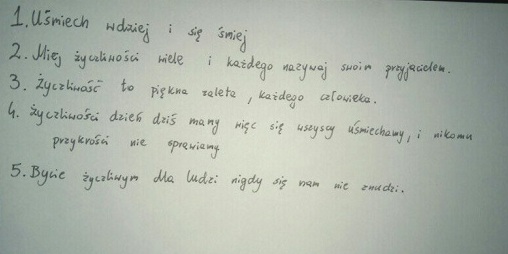 1. Uśmiech wdziej i się śmiej
2. Miej życzliwości wiele i każdego nazywaj swoim przyjacielem.
3. Życzliwość to piękna zaleta, każdego człowieka.
4. Życzliwości dzień dziś mamy więc się wszyscy uśmiechamy, i nikomu
przykrości nie sprawiamy
5. Bycie życzliwym dla ludzi nigdy się nam nie znudzi.